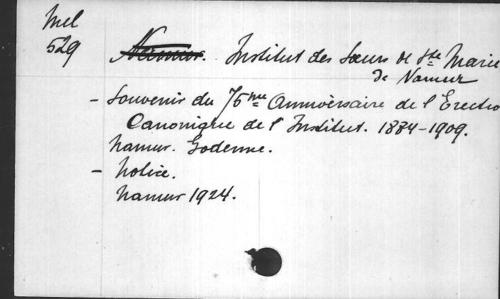 Mel
529
Namur. Institut des Sœurs de Ste Marie
de Namur
- Souvenir du 75me Anniversaire de l'Erectio
Canonique de l'Institut. 1884-1909.
Namur. Godenne.
- Notice.
Namur 1924.